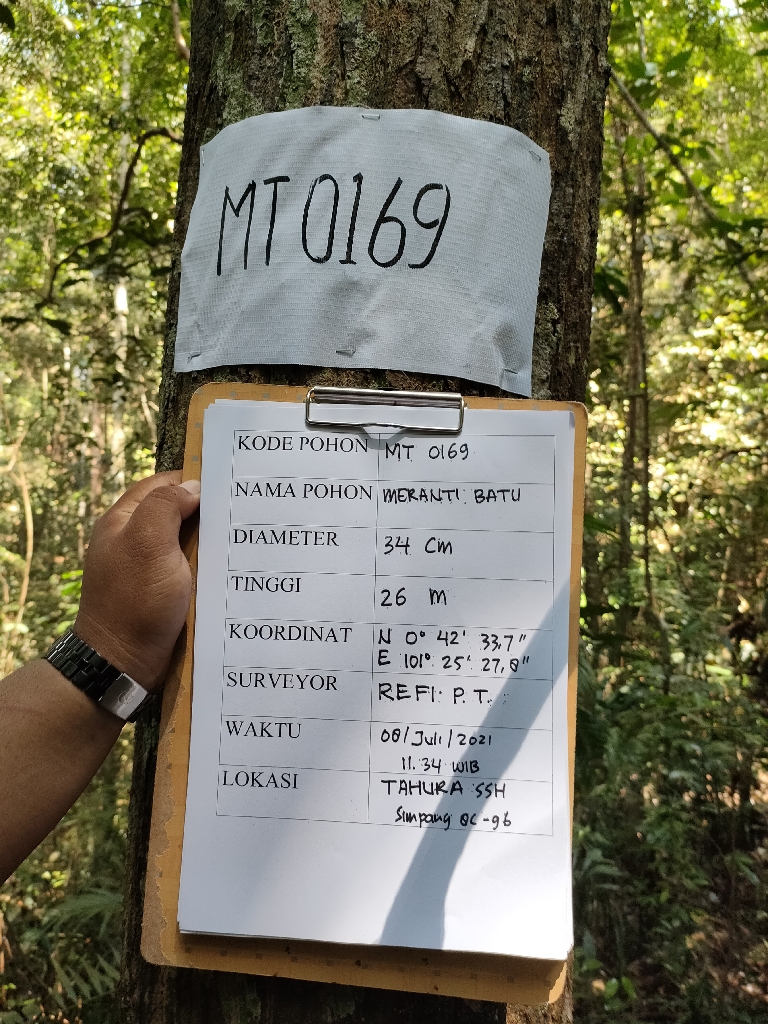 MT 0169
KODE POHON MT 0169
NAMA POHON MERANTI BATU
DIAMETER 34 Cm
TINGGI 26 M
KOORDINAT N 0° 42' 33,7"
E 101° 25' 27,8"
SURVEYOR REFI. P. T.
WAKTU 08/Juli/2021
11.34 WIB
LOKASI TAHURA SSH
Simpang